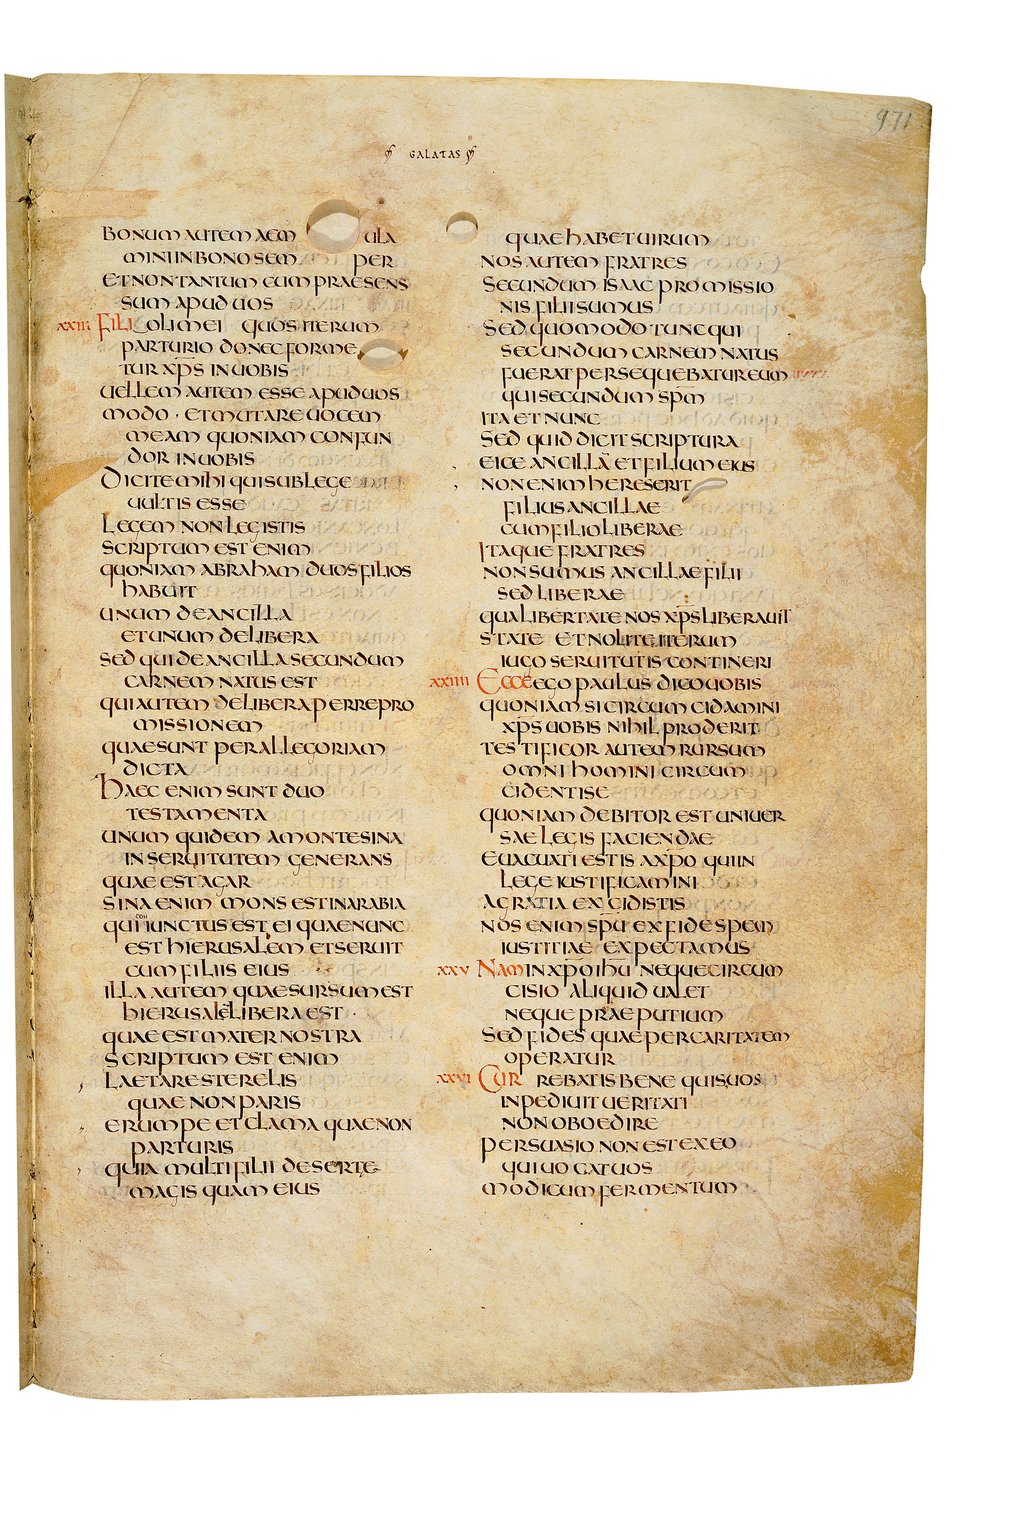 971
GALATAS
BONUM AUTEM AEM ULA
MINI IN BONO SEM PER
ET NON TANTUM CUM PRAESENS
SUM APUD UOS
XXIII FILIOLI MEI QUOS ITERUM
PARTURIO DONEC FORME
TUR XP̅S IN UOBIS
UELLEM AUTEM ESSE APUD UOS
MODO · ET MUTARE UOCEM
MEAM QUONIAM CONFUN
DOR IN UOBIS
DICITE MIHI QUI SUB LEGE
UULTIS ESSE
LEGEM NON LEGISTIS
SCRIPTUM EST ENIM
QUONIAM ABRAHAM DUOS FILIOS
HABUIT
UNUM DE ANCILLA
ET UNUM DE LIBERA
SED QUI DE ANCILLA SECUNDUM
CARNEM NATUS EST
QUI AUTEM DE LIBERA PER REPRO
MISSIONEM
QUAE SUNT PER ALLEGORIAM
DICTA
HAEC ENIM SUNT DUO
TESTAMENTA
UNUM QUIDEM A MONTE SINA
IN SERUITUTEM GENERANS
QUAE EST AGAR
SINA ENIM MONS EST IN ARABIA
QUI CONIUNCTUS EST EI QUAE NUNC
EST HIERUSALEM ET SERUIT
CUM FILIIS EIUS
ILLA AUTEM QUAE SURSUM EST
HIERUSALE̅ LIBERA EST ·
QUAE EST MATER NOSTRA
SCRIPTUM EST ENIM
LAETARE STERELIS
QUAE NON PARIS
ERUMPE ET CLAMA QUAE NON
PARTURIS
QUIA MULTI FILII DESERTE
MAGIS QUAM EIUS
QUAE HABET UIRUM
NOS AUTEM FRATRES
SECUNDUM ISAAC PROMISSIO
NIS FILII SUMUS
SED QUOMODO TUNC QUI
SECUNDUM CARNEM NATUS
FUERAT PERSEQUEBATUR EUM
QUI SECUNDUM SP̅M
ITA ET NUNC
SED QUID DICIT SCRIPTURA
EICE ANCILLA̅ ET FILIUM EIUS
NON ENIM HERES ERIT
FILIUS ANCILLAE
CUM FILIO LIBERAE
ITAQUE FRATRES
NON SUMUS ANCILLAE FILII
SED LIBERAE
QUA LIBERTATE NOS XP̅S LIBERAUIT
STATE ET NOLITE ITERUM
IUGO SERUITUTIS CONTINERI
XXIIII ECCE EGO PAULUS DICO UOBIS
QUONIAM SI CIRCUMCIDAMINI
XP̅S UOBIS NIHIL PRODERIT
TESTIFICOR AUTEM RURSUM
OMNI HOMINI CIRCUM
CIDENTI SE
QUONIAM DEBITOR EST UNIUER
SAE LEGIS FACIENDAE
EUACUATI ESTIS A XP̅O QUI IN
LEGE IUSTIFICAMINI
A GRATIA EXCIDISTIS
NOS ENIM SP̅U EX FIDE SPEM
IUSTITIAE EXPECTAMUS
XXV NAM IN XP̅O IH̅U NEQUE CIRCUM
CISIO ALIQUID UALET
NEQUE PRAEPUTIUM
SED FIDES QUAE PER CARITATEM
OPERATUR
XXVI CURREBATIS BENE QUIS UOS
INPEDIUIT UERITATI
NON OBOEDIRE
PERSUASIO NON EST EX EO
QUI UOCAT UOS
MODICUM FERMENTUM